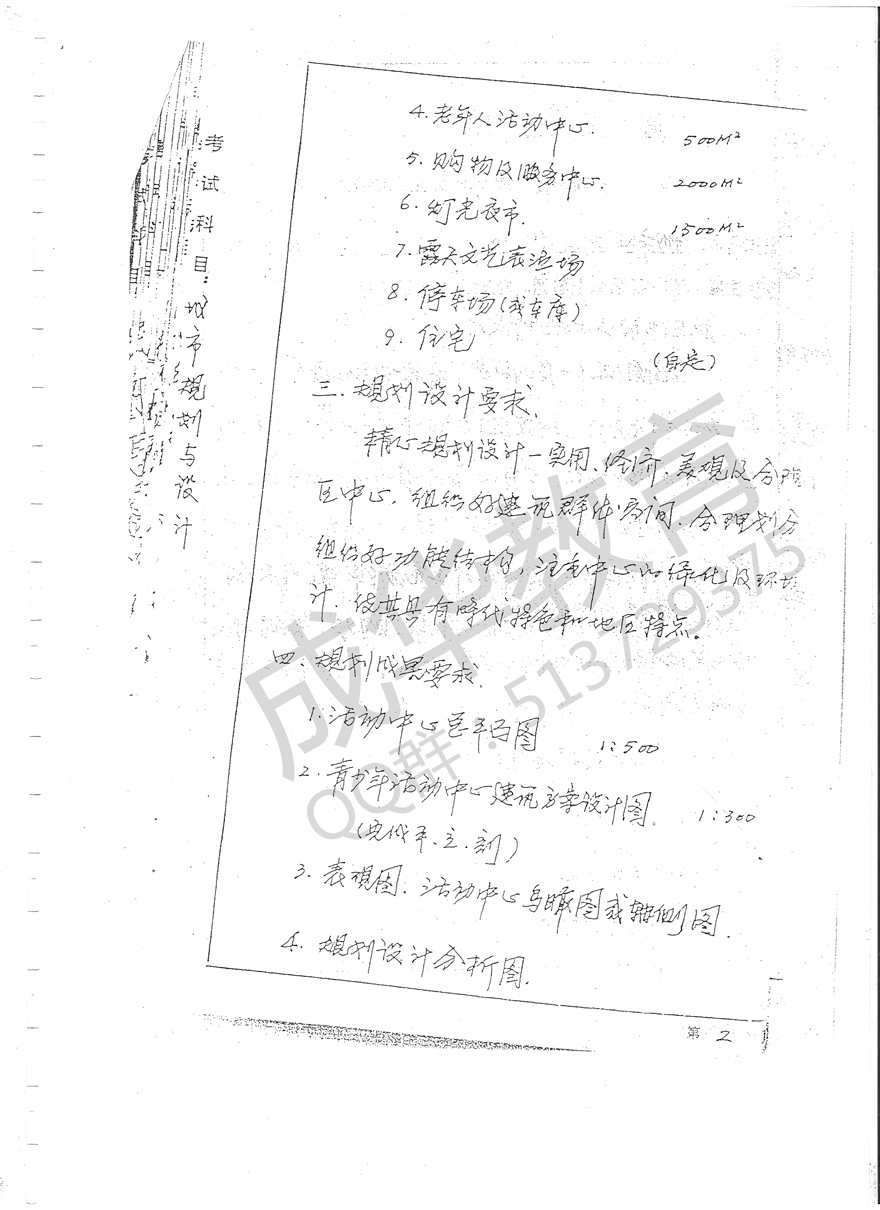 考试科目：城市规划与设计
4. 老年人活动中心. 500M²
5. 购物及服务中心. 2000M²
6. 灯光夜市. 1500M²
7. 露天文艺表演场
8. 停车场(或车库)
9. 住宅 (自定)
三. 规划设计要求.
精心规划设计一实用、经济、美观及合理
区中心. 组织好建筑群体空间. 合理划分
组织好功能结构, 注意中心的绿化及环境
计. 使其具有时代特色和地区特点。
四、规划成果要求.
1. 活动中心总平面图 1:500
2. 青少年活动中心建筑方案设计图. 1:300
(包括平、立、剖)
3. 表现图. 活动中心鸟瞰图或轴侧图.
4. 规划设计分析图.
第 2
成华教育
QQ群：513729375